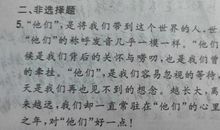 二、非选择题
5.“他们”,是将我们带到这个世界的人,世
“他们”的称呼发音几乎一模一样。“他们”
候是我们背后的关怀与唠叨,也是我们曾
的牵挂。“他们”,是我们容易忽视的等待,
天是我们再也见不到的想念。越长大,离
来越远,我们却一直常驻在“他们”的心里
之年,对“他们”好一点!